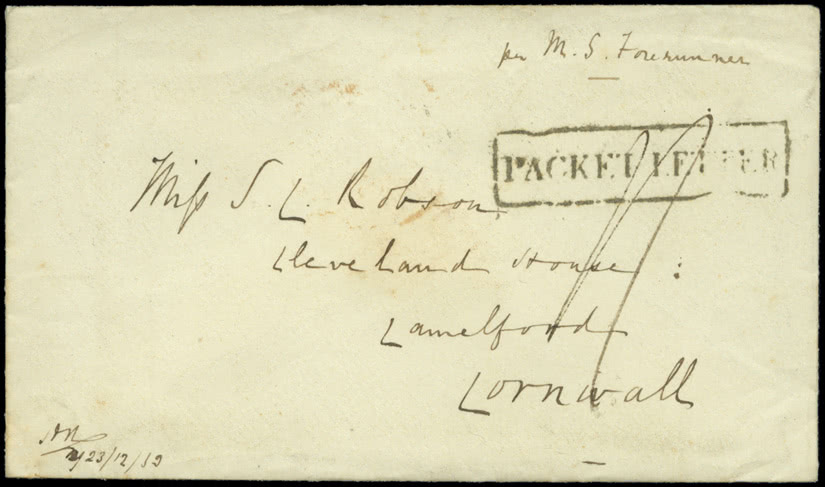 per M. S. Forerunner
PACKET LETTER
Miss S. L. Robson
Cleveland House
Camelford
Cornwall
23/12/52